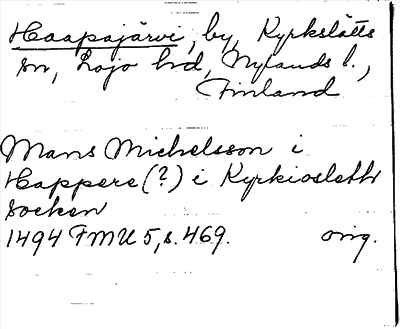 Haapajärvi, by, Kyrkslätts
sn, Lojo hd, Nylands l.,
Finland
Mans Michelsson i
Happere (?) i Kyrkioslethr
socken
1494 FMU 5, s. 469. orig.